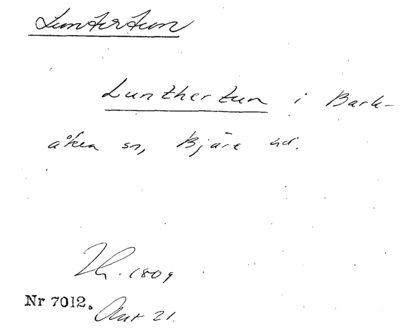 Luntertun
Lunthertun i Bark-
åkra sn, Bjäre hd.
Th. 1809
Nr 7012. Ant 21.